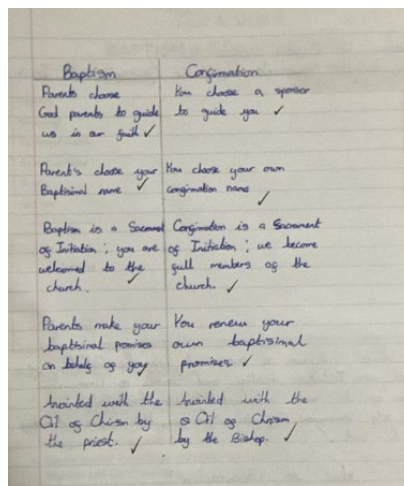 Baptism
Confirmation
Parents choose
God parents to guide
us in our faith ✓
You choose a sponsor
to guide you ✓
Parent's choose your
Baptisimal name ✓
You choose your own
confirmation name ✓
Baptism is a Sacrament
of Initiation ; you are
welcomed to the
church. ✓
Confirmation is a Sacrament
of Initiation ; we become
full members of the
church. ✓
Parents make your
baptisimal promises
on behalf of you ✓
You renew your
own baptisimal
promises. ✓
Anointed with the
Oil of Chrism by
the priest. ✓
Anointed with the
Oil of Chrism
by the Bishop. ✓